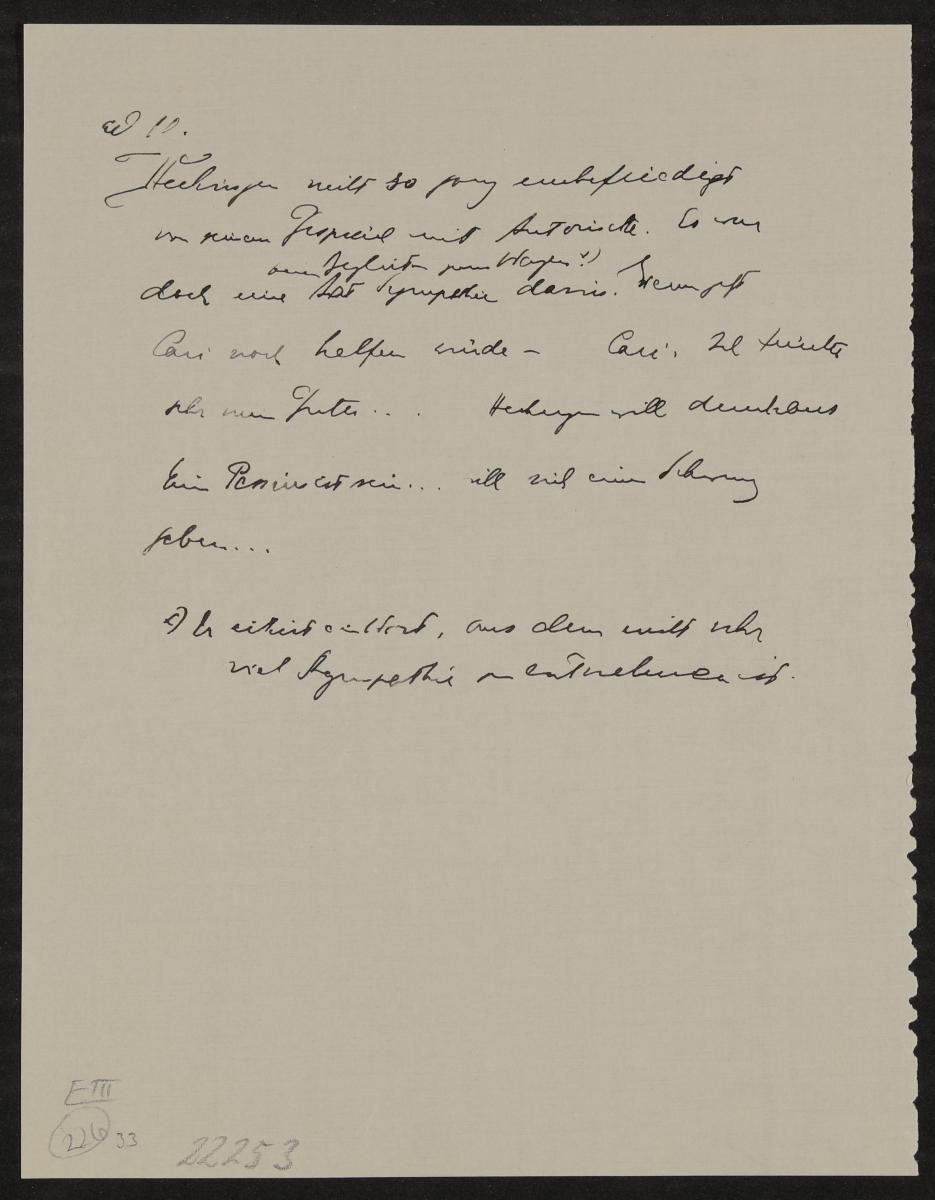 ad II.
Hechingen nicht so ganz unbefriedigt
von seinem Gespräch mit Antoinette. Es war
beim Begleiten zum Wagen!)
doch eine Art Sympathie darin. Wenn jetzt
Cari noch helfen würde – Cari: Ich fürchte
sehr nein Guter . . . Hechingen will durchaus
kein Pessimist sein... will sich einen Schwung
geben...
er citiert ein Wort, aus dem nicht sehr
viel Sympathie zu entnehmen ist.
E III
226 33
22253